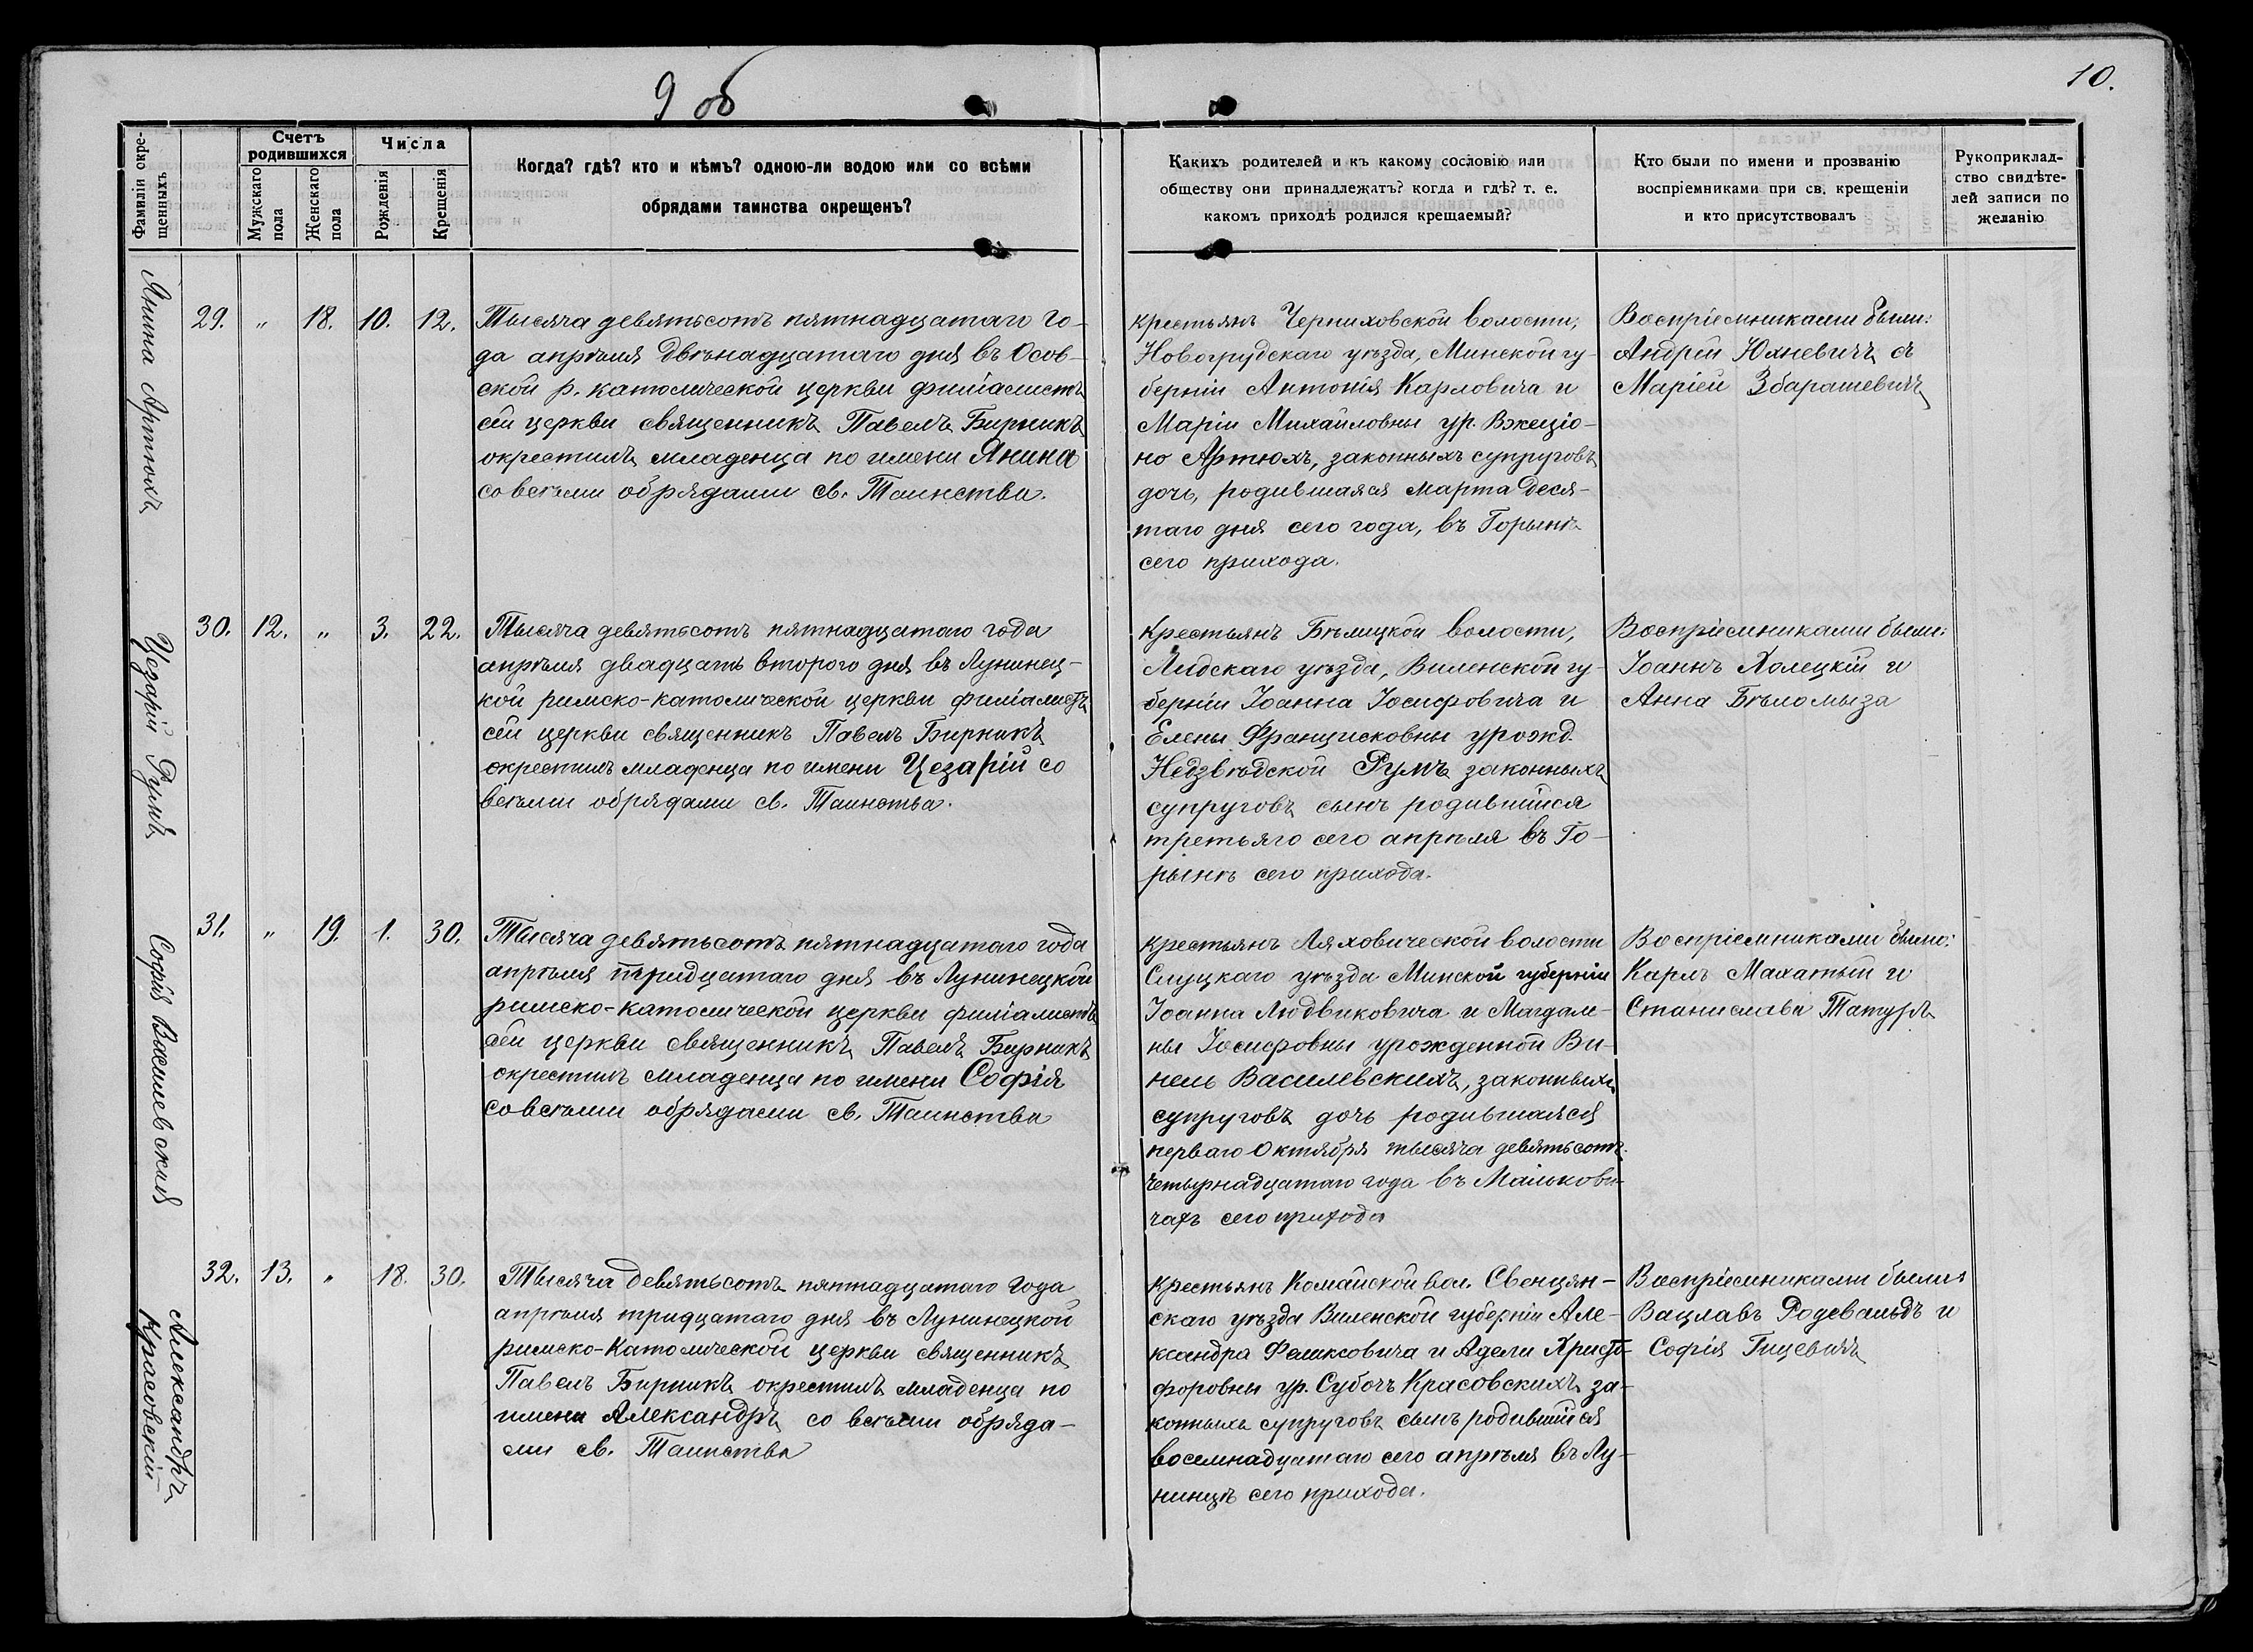 9 об
10.
Фамиліи окре-
щенныхъ
Счетъ
родившихся
Мужскаго
пола
Женскаго
пола
Числа
Рожденія
Крещенія
Когда? гдѣ? кто и кѣмъ? одною-ли водою или со всѣми
обрядами таинства окрещенъ?
Какихъ родителей и къ какому сословію или
обществу они принадлежатъ? когда и гдѣ? т. е.
какомъ приходѣ родился крещаемый?
Кто были по имени и прозванію
воспріемниками при св. крещеніи
и кто присутствовалъ
Рукоприклад-
ство свидѣте-
лей записи по
желанію
Янина Артюхъ
29. " 18. 10. 12.
Тысяча девятьсотъ пятнадцатаго го-
да апрѣля двѣнадцатаго дня въ Осов-
ской р. католической церкви филіалистъ
сей церкви священникъ Павелъ Бирникъ
окрестилъ младенца по имени Янина
со всѣми обрядами св. Таинства.
крестьянъ Черниховской волости,
Новогрудскаго уѣзда, Минской гу-
берніи Антонія Карловича и
Маріи Михайловны ур. Вжеціо-
но Артюхъ, законныхъ супруговъ
дочь, родившаяся марта деся-
таго дня сего года, въ Горынѣ
сего прихода.
Воспріемниками были:
Андрей Юхневичъ съ
Маріей Збарашевичъ
Цезарій Румъ
30. 12. " 3. 22.
Тысяча девятьсотъ пятнадцатаго года
апрѣля двадцать второго дня въ Лунинец-
кой римско-католической церкви филіалистъ
сей церкви священникъ Павелъ Бирникъ
окрестилъ младенца по имени Цезарій со
всѣми обрядами св. Таинства.
Крестьянъ Бѣлицкой волости,
Лидскаго уѣзда, Виленской гу-
берніи Іоанна Іосифовича и
Елены Францисковны урожд.
Недзвѣдской Румъ законныхъ
супруговъ сынъ родившійся
третьяго сего апрѣля въ Го-
рынѣ сего прихода.
Воспріемниками были:
Іоаннъ Холецкій и
Анна Бѣломыза
Софія Василевская
31. " 19. 1. 30.
Тысяча девятьсотъ пятнадцатаго года
апрѣля тридцатаго дня въ Лунинецкой
римско-католической церкви филіалистъ
сей церкви священникъ Павелъ Бирникъ
окрестилъ младенца по имени Софія
со всѣми обрядами св. Таинства
крестьянъ Ляховической волости
Слуцкаго уѣзда Минской губерніи
Іоанна Людвиковича и Магдал-
ны Іосифовны урожденной Ви-
нель Василевскихъ, законныхъ
супруговъ дочь родившаяся
перваго Октября тысяча девятьсотъ
четырнадцатаго года въ Малькови-
чахъ сего прихода
Воспріемниками были:
Карлъ Махатый и
Станислава Татуръ
Александръ
Красовскій
32. 13. " 18. 30.
Тысяча девятьсотъ пятнадцатаго года
апрѣля тридцатаго дня въ Лунинецкой
римско-Католической церкви священникъ
Павелъ Бирникъ окрестилъ младенца по
имени Александръ со всѣми обряда-
ми св. Таинства
крестьянъ Комайской вол. Свенцян-
скаго уѣзда Виленской губерніи Але-
ксандра Феликсовича и Адели Христо-
форовны ур. Суботъ Красовскихъ за-
конныхъ супруговъ сынъ родившійся
восемнадцатаго сего апрѣля въ Лу-
нинцѣ сего прихода.
Воспріемниками были:
Вацлавъ Родевальдъ и
Софія Гицевичъ